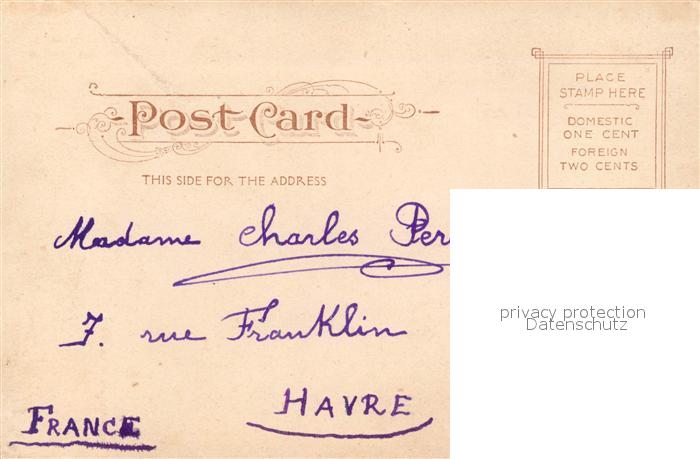 Post Card
THIS SIDE FOR THE ADDRESS
PLACE
STAMP HERE
DOMESTIC
ONE CENT
FOREIGN
TWO CENTS
Madame Charles Per
7. rue Franklin
HAVRE
FRANCE
privacy protection
Datenschutz